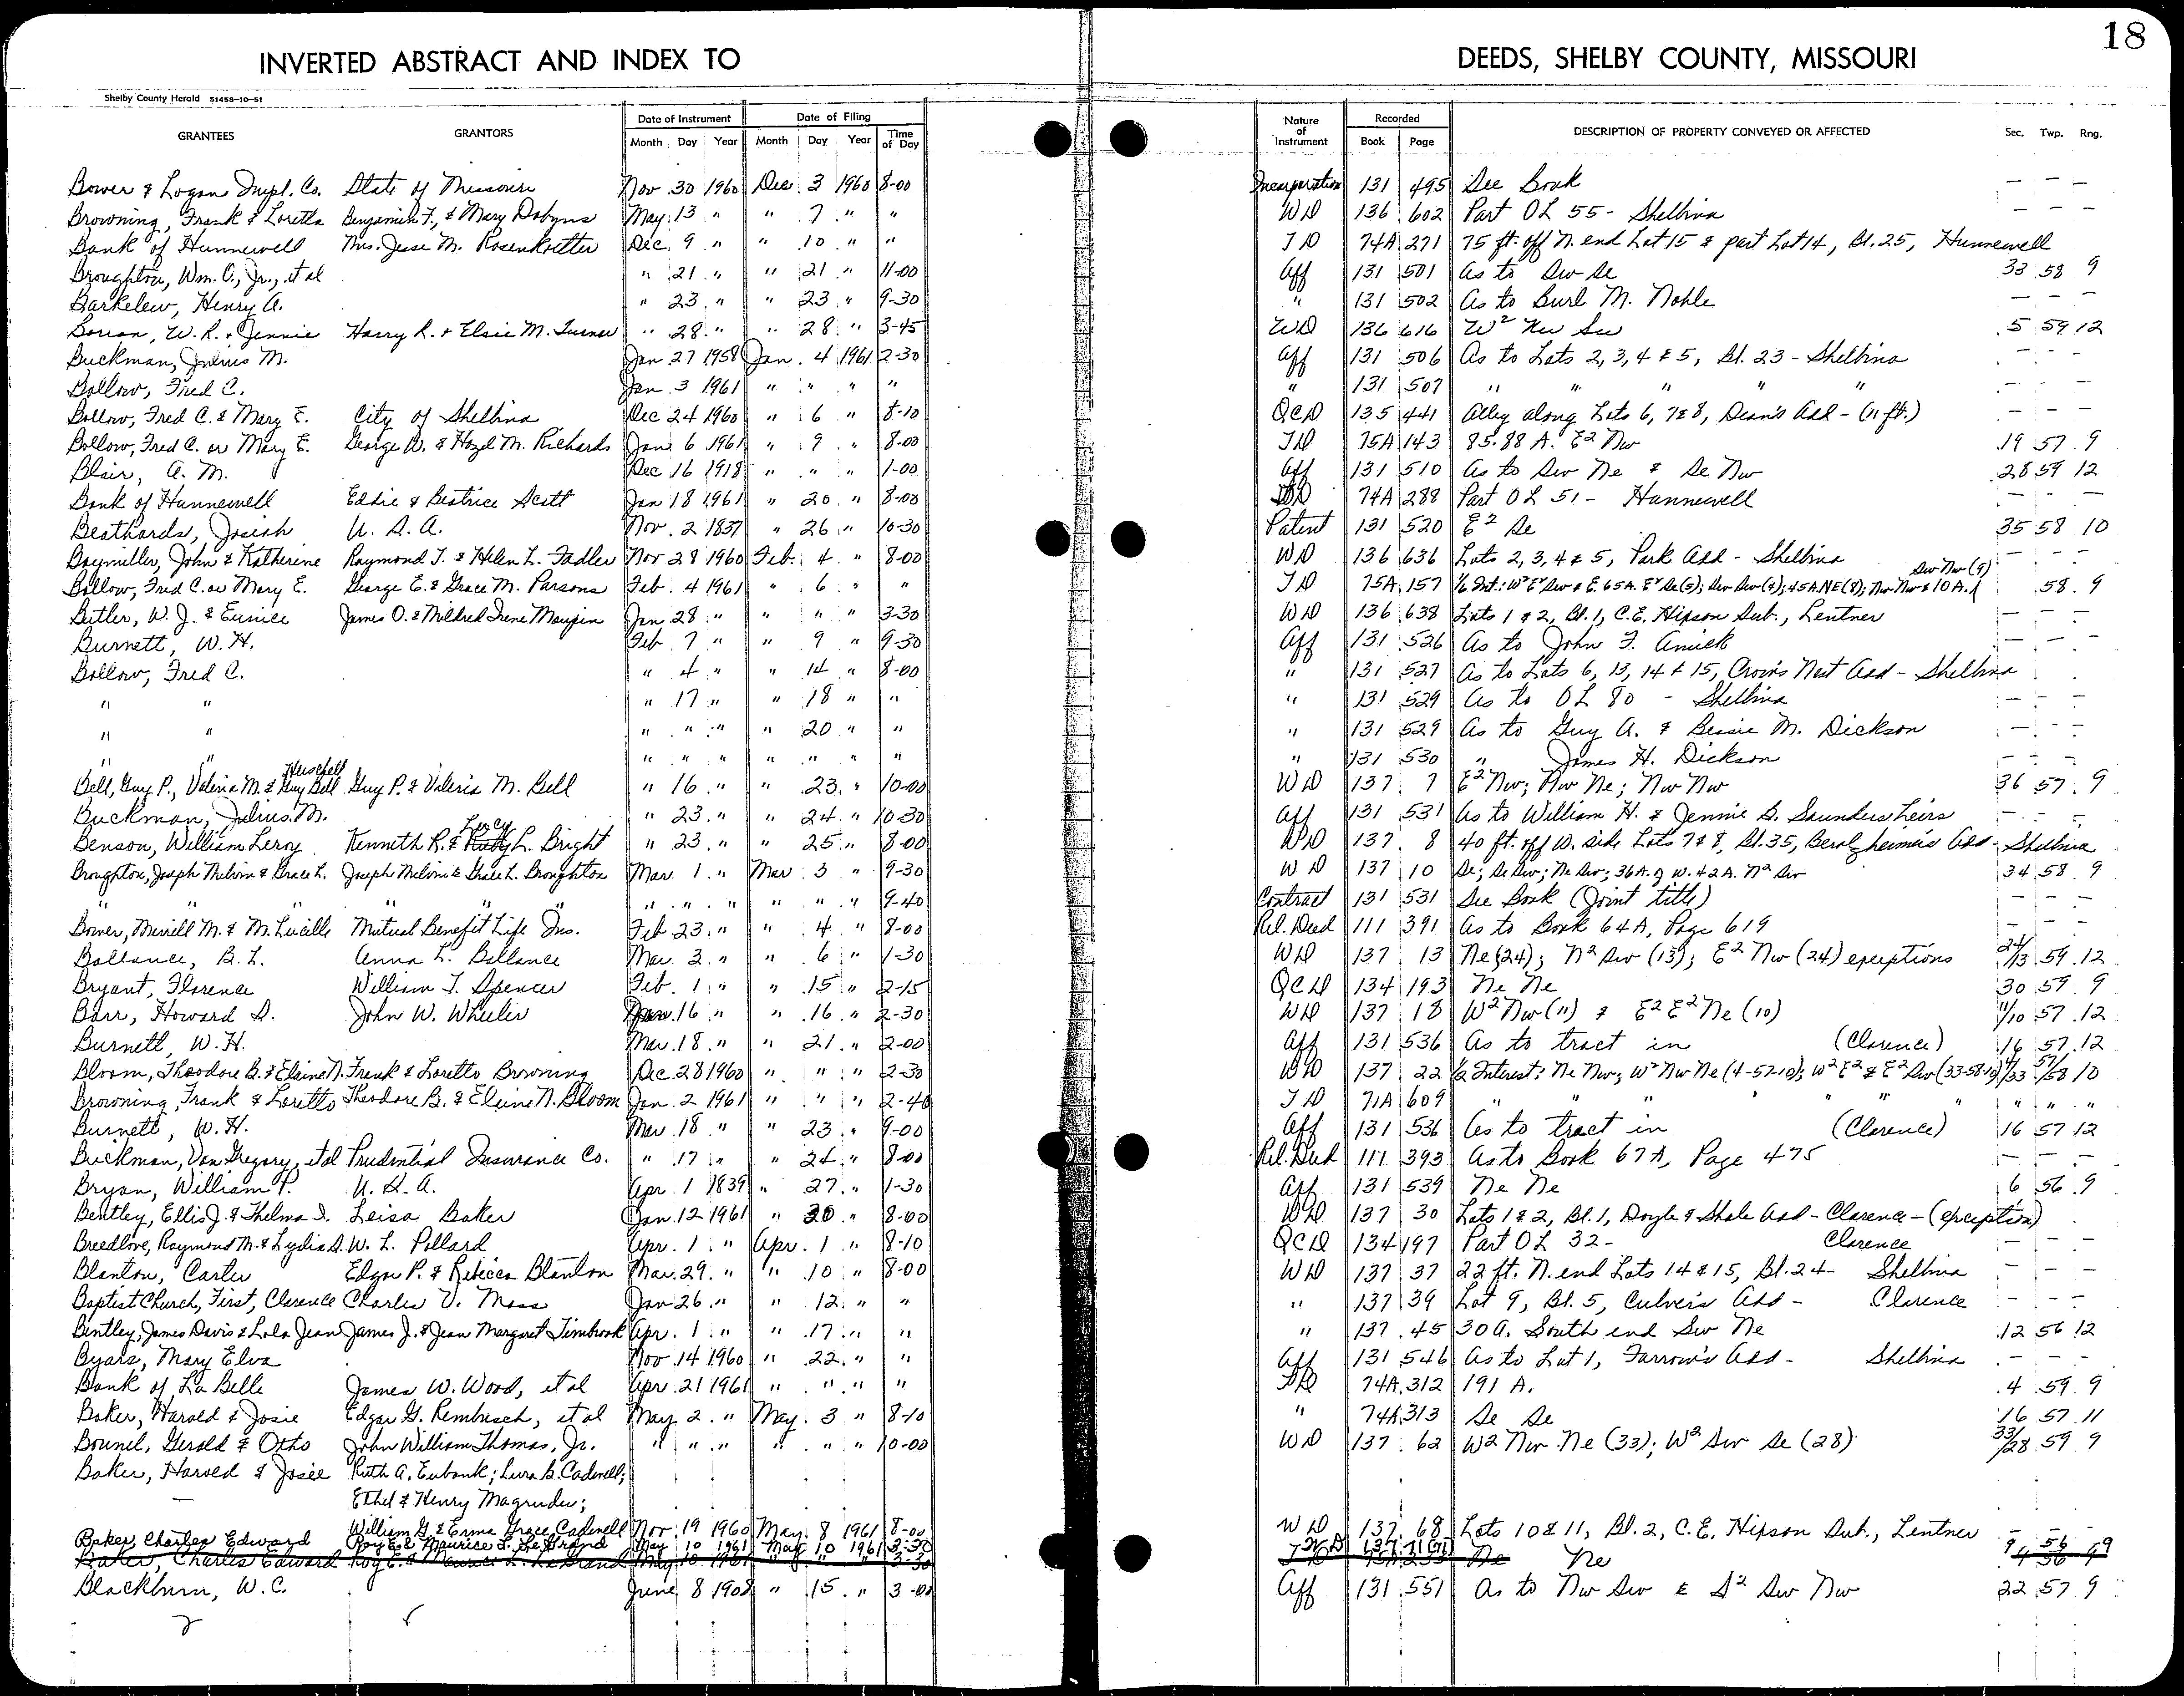 18
INVERTED ABSTRACT AND INDEX TO DEEDS, SHELBY COUNTY, MISSOURI
Shelby County Herald 51458-10-51
GRANTEES GRANTORS Date of Instrument Date of Filing Nature of Instrument Recorded DESCRIPTION OF PROPERTY CONVEYED OR AFFECTED Sec. Twp. Rng.
Month Day Year Month Day Year Time of Day Book Page
Bower & Logan Impl. Co. State of Missouri Nov 30 1960 Dec 3 1960 8-00 Incorporation 131 495 See Book — — —
Browning, Frank & Loretta Benjamin F., & Mary Dobyns May 13 " " 7 " " WD 136 602 Part OL 55 - Shelbina — — —
Bank of Hunnewell Mrs. Jesse M. Rosenkoetter Dec 9 " " 10 " " TD 74A 271 75 ft. off N. end Lot 15 & part Lot 14, Bl. 25, Hunnewell
Broughton, Wm. C., Jr., et al " 21 " " 21 " 11-00 Aff 131 501 As to Sw Se 33 58 9
Barkelew, Henry A. " 23 " " 23 " 9-30 " 131 502 As to Burl M. Nohle — — —
W. R. & Jennie Harry R. & Elsie M. Turner " 28 " " 28 " 3-45 WD 136 616 W² Nw Sw 5 59 12
Buckman, Julius M. Jan 27 1958 Jan. 4 1961 2-30 Aff 131 506 As to Lots 2, 3, 4 & 5, Bl. 23 - Shelbina — — —
Bollow, Fred C. Jan 3 1961 " " " " " 131 507 " " " " " — — —
Bollow, Fred C. & Mary E. City of Shelbina Dec 24 1960 " 6 " 8-10 QCD 135 441 Alley along Lots 6, 7 & 8, Dean's Add - (11 ft.) — — —
Bollow, Fred C. or Mary E. George W. & Hazel M. Richards Jan 6 1961 " 9 " 8-00 TD 75A 143 85.88 A. E² Nw 19 57 9
Blair, A. M. Dec 16 1918 " " " 1-00 Aff 131 510 As to Sw Ne & Se Nw 28 59 12
Bank of Hunnewell Eddie & Beatrice Scott Jan 18 1961 " 20 " 8-00 74A 288 Part OL 51 - Hunnewell — — —
Beathards, Josiah U. S. A. Nov. 2 1837 " 26 " 10-30 Patent 131 520 E² Se 35 58 10
Baymiller, John & Katherine Raymond T. & Helen L. Fadler Nov 28 1960 Feb. 4 " 8-00 WD 136 636 Lots 2, 3, 4 & 5, Park Add - Shelbina — — —
Bollow, Fred C. or Mary E. George E. & Grace M. Parsons Feb. 4 1961 " 6 " " TD 75A 157 1/6 Int.: W² E² Sw & E. 65 A. E² Se (5); Sw Sw (4); 45A NE (8); Nw Nw & 10 A. Sw Nw (9) 58 9
Butler, W. J. & Eunice James O. & Mildred Irene Maupin Jan 28 " " " " 3-30 WD 136 638 Lots 1 & 2, Bl. 1, C.E. Hixson Sub., Lentner — — —
Burnett, W. H. Feb 7 " " 9 " 9-30 Aff 131 526 As to John F. Amick — — —
Bollow, Fred C. " 4 " " 14 " 8-00 " 131 527 As to Lots 6, 13, 14 & 15, Crow's Nest Add - Shelbina
" " " 17 " " 18 " " " 131 529 As to OL 80 - Shelbina — — —
" " " " " " 20 " " " 131 529 As to Guy A. & Bessie M. Dickson — — —
" " " " " " " " " " 131 530 " James H. Dickson — — —
Bell, Guy P., Valeria M. & Herschell Guy Bell Guy P. & Valeria M. Bell " 16 " " 23 " 10-00 WD 137 7 E² Nw; Nw Ne; Nw Nw 36 57 9
Buckman, Julius M. " 23 " " 24 " 10-30 Aff 131 531 As to William H. & Jennie B. Saunders heirs — — —
Benson, William Leroy Kenneth R. & Lucy L. Bright " 23 " " 25 " 8-00 WD 137 8 40 ft. off W. side Lots 7 & 8, Bl. 35, Berolzheimer's Add - Shelbina
Broughton, Joseph Melvin & Grace L. Joseph Melvin & Grace L. Broughton Mar. 1 " Mar 3 " 9-30 WD 137 10 Se; Se Sw; Ne Sw; 36 A. of W. 42 A. N² Sw 34 58 9
" " " " " " " " " " 9-40 Contract 131 531 See Book (Joint title) — — —
Bower, Merrill M. & M. Lucille Mutual Benefit Life Ins. Feb 23 " " 4 " 8-00 Rel. Deed 111 391 As to Book 64A, Page 619 — — —
Ballance, B. L. Anna L. Ballance Mar. 3 " " 6 " 1-30 WD 137 13 Ne (24); N² Sw (13); E² Nw (24) exceptions 24/13 59 12
Bryant, Florence William T. Spencer Feb. 1 " " 15 " 2-15 QCD 134 193 Ne Ne 30 59 9
Barr, Howard D. John W. Wheeler 16 " " 16 " 2-30 WD 137 18 W² Nw (11) & E² E² Ne (10) 11/10 57 12
Burnett, W. H. Mar. 18 " " 21 " 2-00 Aff 131 536 As to tract in (Clarence) 16 57 12
Bloom, Theodore B. & Elaine N. Frank & Loretto Browning Dec. 28 1960 " " " 2-30 WD 137 22 1/2 Interest: Ne Nw; W² Nw Ne (4-57-10); W² E² & E² Sw (33-58-10) 4/33 57/58 10
Browning, Frank & Loretto Theodore B. & Elaine N. Bloom Jan. 2 1961 " " " 2-40 TD 71A 609 " " " " " " " " "
Burnett, W. H. Mar. 18 " " 23 " 9-00 Aff 131 536 As to tract in (Clarence) 16 57 12
Buckman, Van Gregory, et al Prudential Insurance Co. " 17 " " 24 " 8-00 Rel. Deed 111 393 As to Book 67A, Page 475 — — —
Bryan, William P. U. S. A. Apr. 1 1839 " 27 " 1-30 Aff 131 539 Ne Ne 6 56 9
Bentley, Ellis J. & Thelma I. Leisa Baker Jan. 12 1961 " 30 " 8-00 WD 137 30 Lots 1 & 2, Bl. 1, Doyle & Shale Add - Clarence - (exception)
Breedlove, Raymond M. & Lydia D. W. L. Pollard Apr. 1 " Apr 1 " 8-10 QCD 134 197 Part OL 32 - Clarence — — —
Blanton, Carter Edgar P. & Rebecca Blanton Mar. 29 " " 10 " 8-00 WD 137 37 22 ft. N. end Lots 14 & 15, Bl. 24 - Shelbina — — —
Baptist Church, First, Clarence Charles V. Moss Jan 26 " " 12 " " " 137 39 Lot 9, Bl. 5, Culver's Add - Clarence — — —
Bentley, James Davis & Lola Jean James J. & Jean Margaret Timbrook Apr. 1 " " 17 " " " 137 45 30 A. South end Sw Ne 12 56 12
Byars, Mary Elva Nov 14 1960 " 22 " " Aff 131 546 As to Lot 1, Farrow's Add - Shelbina — — —
Bank of La Belle James W. Wood, et al Apr 21 1961 " " " " 74A 312 191 A. 4 59 9
Baker, Harold & Josie Edgar G. Rembusch, et al May 2 " May 3 " 8-10 " 74A 313 Se Se 16 57 11
Bounel, Gerald & Otho John William Thomas, Jr. " " " " " " 10-00 WD 137 62 W² Nw Ne (33); W² Sw Se (28) 33/28 59 9
Baker, Harold & Josie Ruth A. Eubank; Lura B. Cadwell;
— Ethel & Henry Magruder;
William G. & Erma Grace Cadwell Nov. 19 1960 May 8 1961 8-00 WD 137 68 Lots 10 & 11, Bl. 2, C. E. Hixson Sub., Lentner — — —
Baker, Charles Edward Roy E. & Maurice L. LeGrand May 10 1961 May 10 1961 3-30 WD 137 71 Ne 9 56 9
Baker, Charles Edward Roy E. & Maurice L. LeGrand May 10 1961 3-30 Ne
Blackburn, W. C. June 8 1908 " 15 " 3-00 Aff 131 551 As to Nw Sw & S² Sw Nw 22 57 9